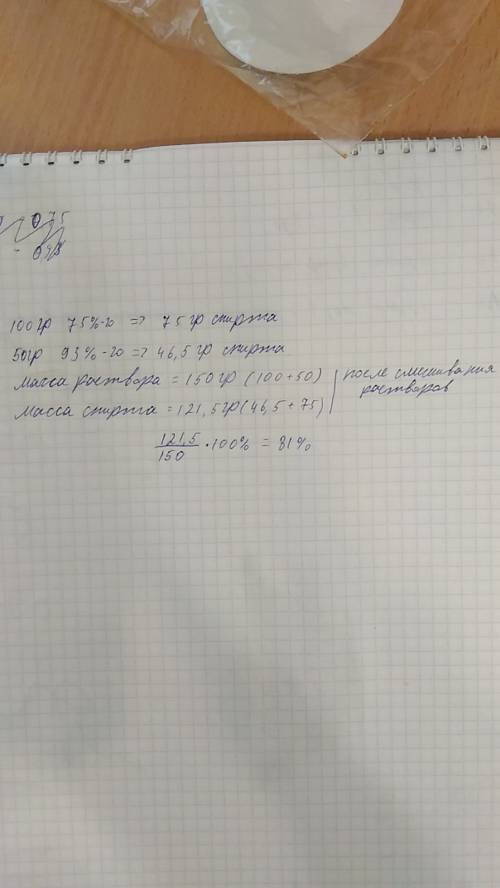 075
100гр 75%-го => 75гр спирта
50гр 93%-го => 46,5 гр спирта
масса раствора = 150гр (100+50)
масса спирта = 121,5гр (46,5 + 75)
после смешивания
растворов
121,5
150
·100% = 81%